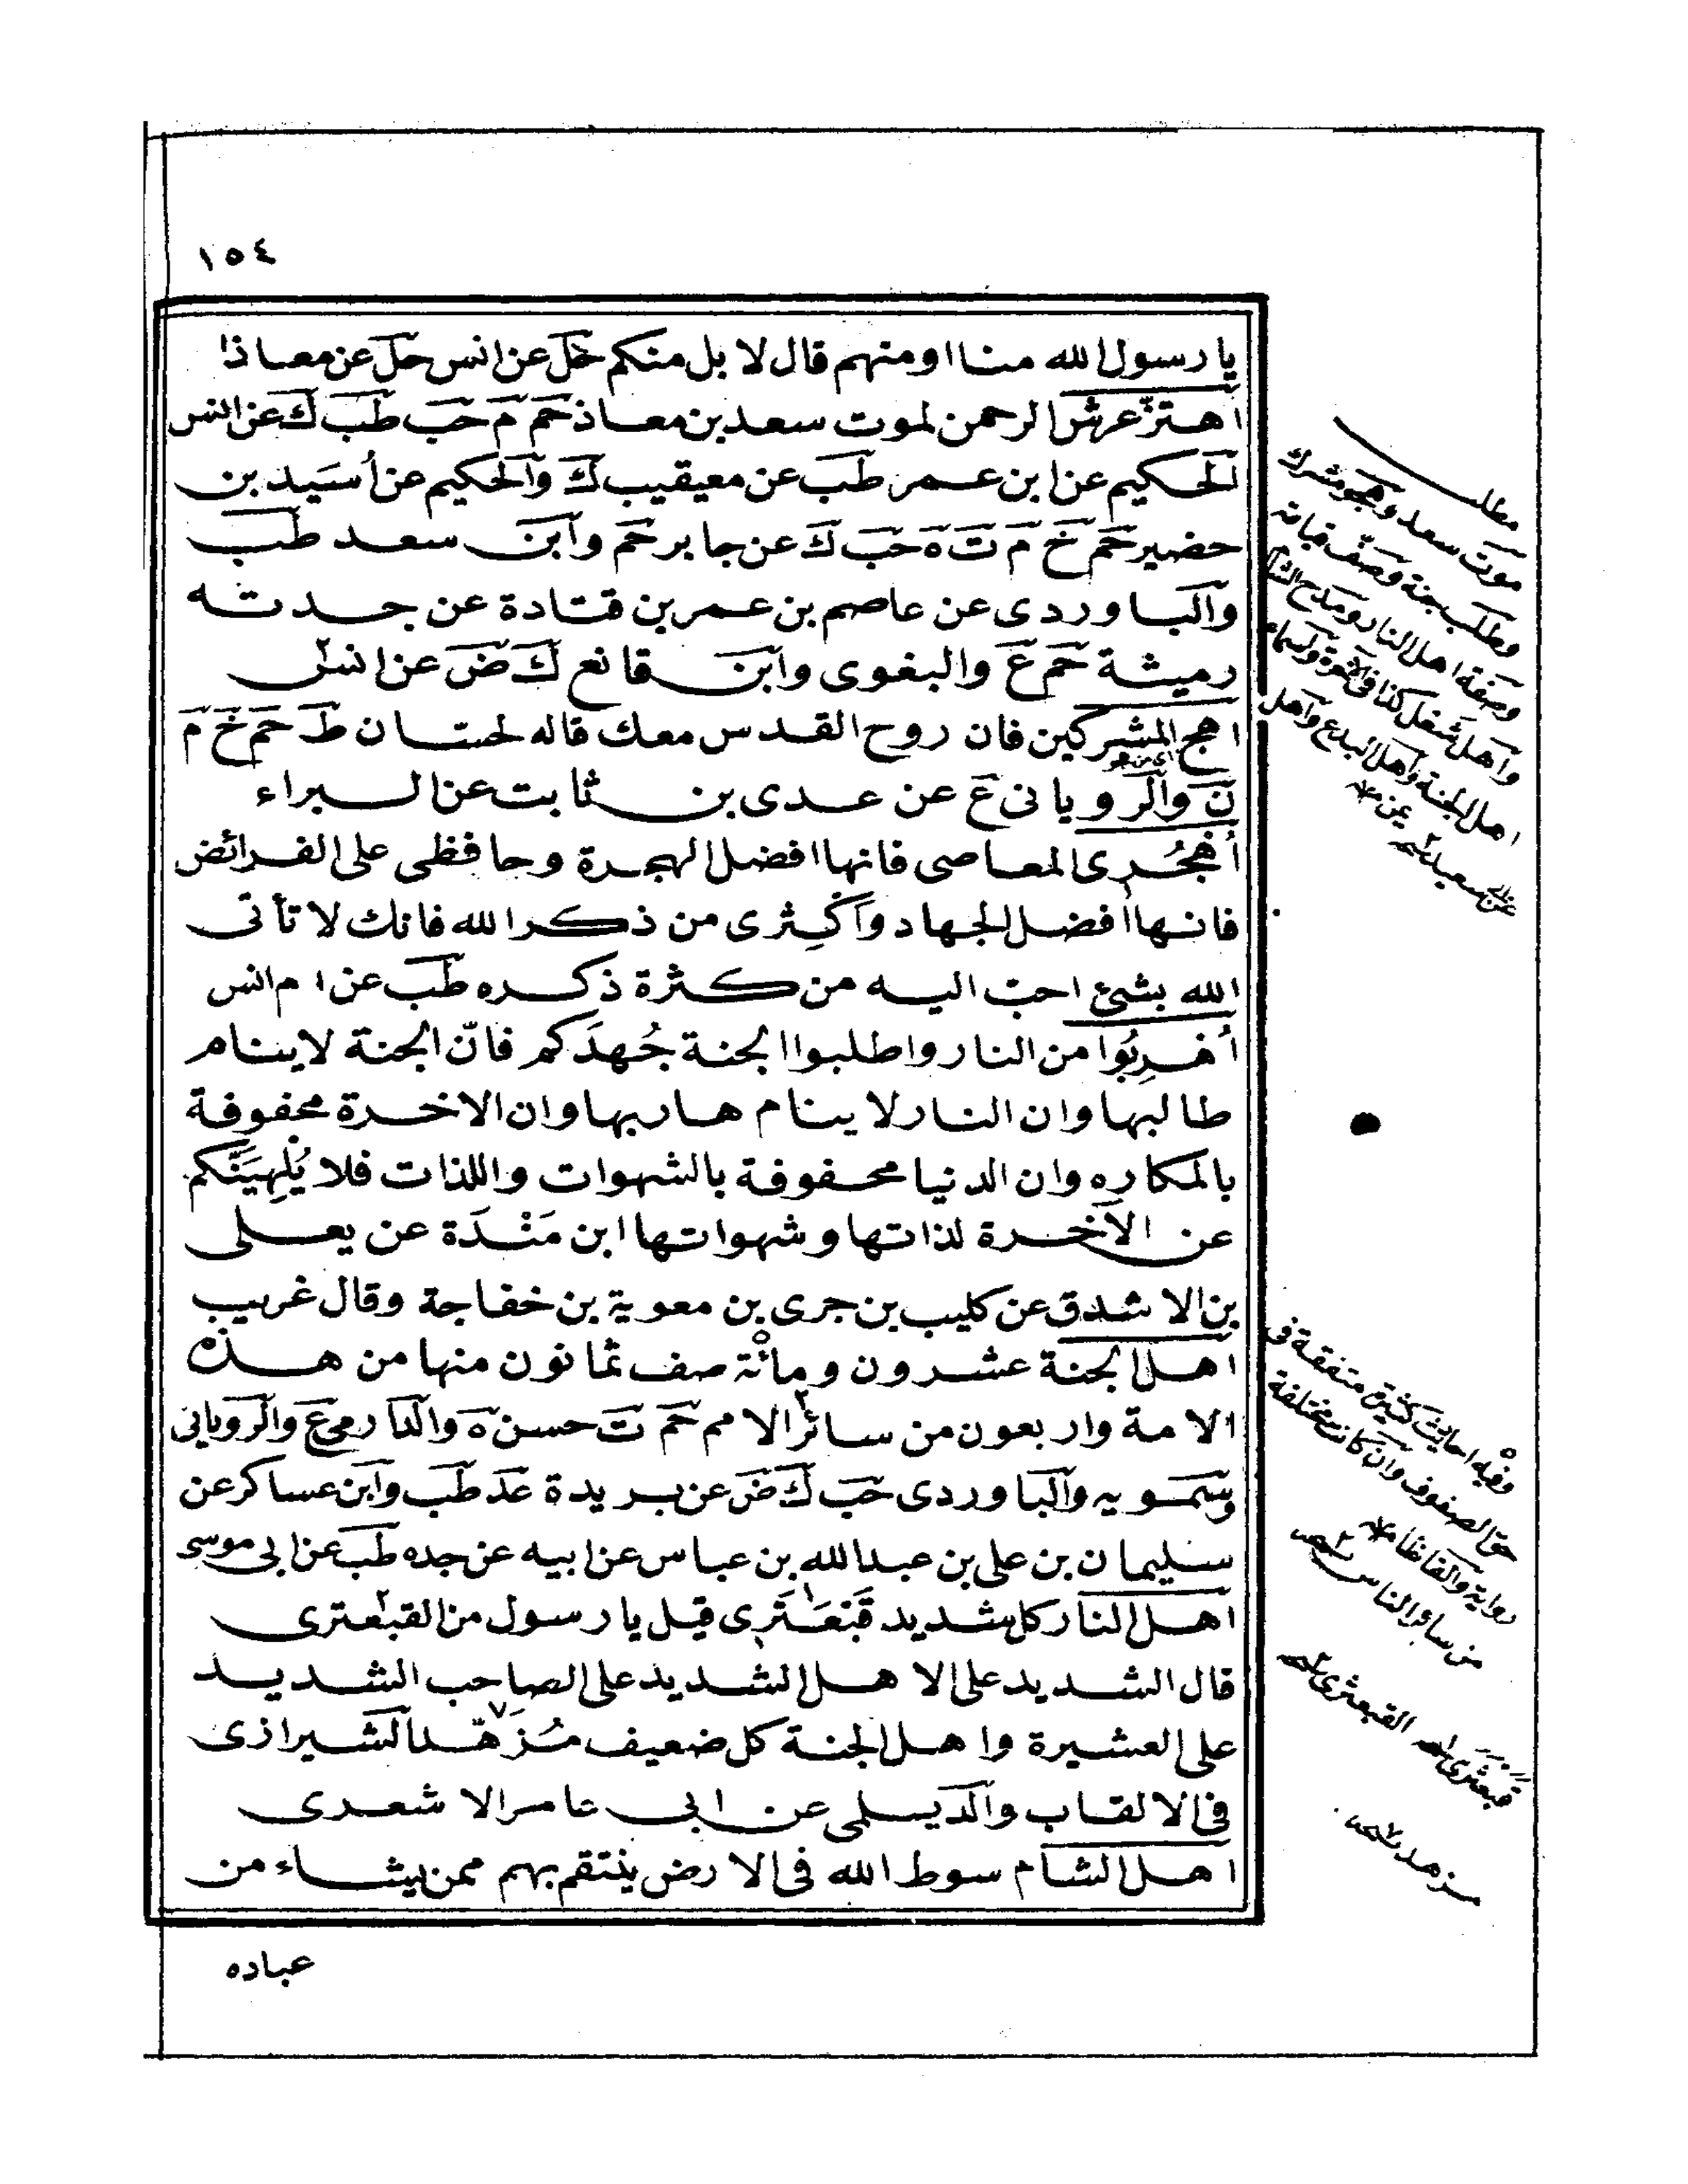 ١٥٤
يا رسول الله منا او منهم قال لا بل منكم خل عن انس حل عن معاذا
اهتزّ عرش الرحمن لموت سعد بن معاذ حم م حب طب ك عن انس
الحكيم عن ابن عمر طب عن معيقيب ك والحكيم عن أسَيد بن
حضير حم خ م ت ه حب ك عن جابر حم وابن سعد طب
والباوردى عن عاصم بن عمر بن قتادة عن جدته
رميثة حم ع والبغوى وابن قانع ك ض عن انس
اهج المشركين فان روح القدس معك قاله لحسان ط حم خ م
ن والرويانى ع عن عدى بن ثابت عن البراء
أهجُرى المعاصى فانها افضل الهجرة وحافظى على الفرائض
فانها افضل الجهاد وأكثرى من ذكر الله فانك لا تأتى
الله بشئ احب اليه من كثرة ذكره طب عن ام انس
أهرِبُوا من النار واطلبوا الجنة جُهدَكم فانّ الجنة لا ينام
طالبها وان النار لا ينام هاربها وان الاخرة محفوفة
بالمكاره وان الدنيا محفوفة بالشهوات واللذات فلا يُلهِيَنَّكم
عن الآخرة لذاتها وشهواتها ابن مَنْدَة عن يعلى
بن الاشدق عن كليب بن جرى بن معوية بن خفاجة وقال غريب
اهل الجنة عشرون ومائة صف ثمانون منها من هذه
الامة واربعون من سائر الامم حم ت حسن ه والدارمى ع والرويانى
وسمويه والباوردى حب ك ض عن بريدة عد طب وابن عساكر عن
سليمان بن على بن عبد الله بن عباس عن ابيه عن جده طب عن ابى موسى
اهل النار كل شديد قَبَعْثَرى قيل يا رسول من القبعترى
قال الشديد على الاهل الشديد على الصاحب الشديد
على العشيرة واهل الجنة كل ضعيف مُزَهّد الشيرازى
فى الالقاب والديلمى عن ابى عامر الاشعرى
اهل الشام سوط الله فى الارض ينتقم بهم ممن يشاء من
عباده
مطلب
موت سعد وهجو مشرك
وطلب جنة وصف قيامة
وصفة اهل النار ومدح
واهل شغل
اهل الجنة واهل البدع واهل
وفيه احاديث كثيرة متفقة فى
حق الصفوف وان كانت مختلفة
رواية والفاظا
من سائر الناس
القبعثرى
قبعثرى
مزهد